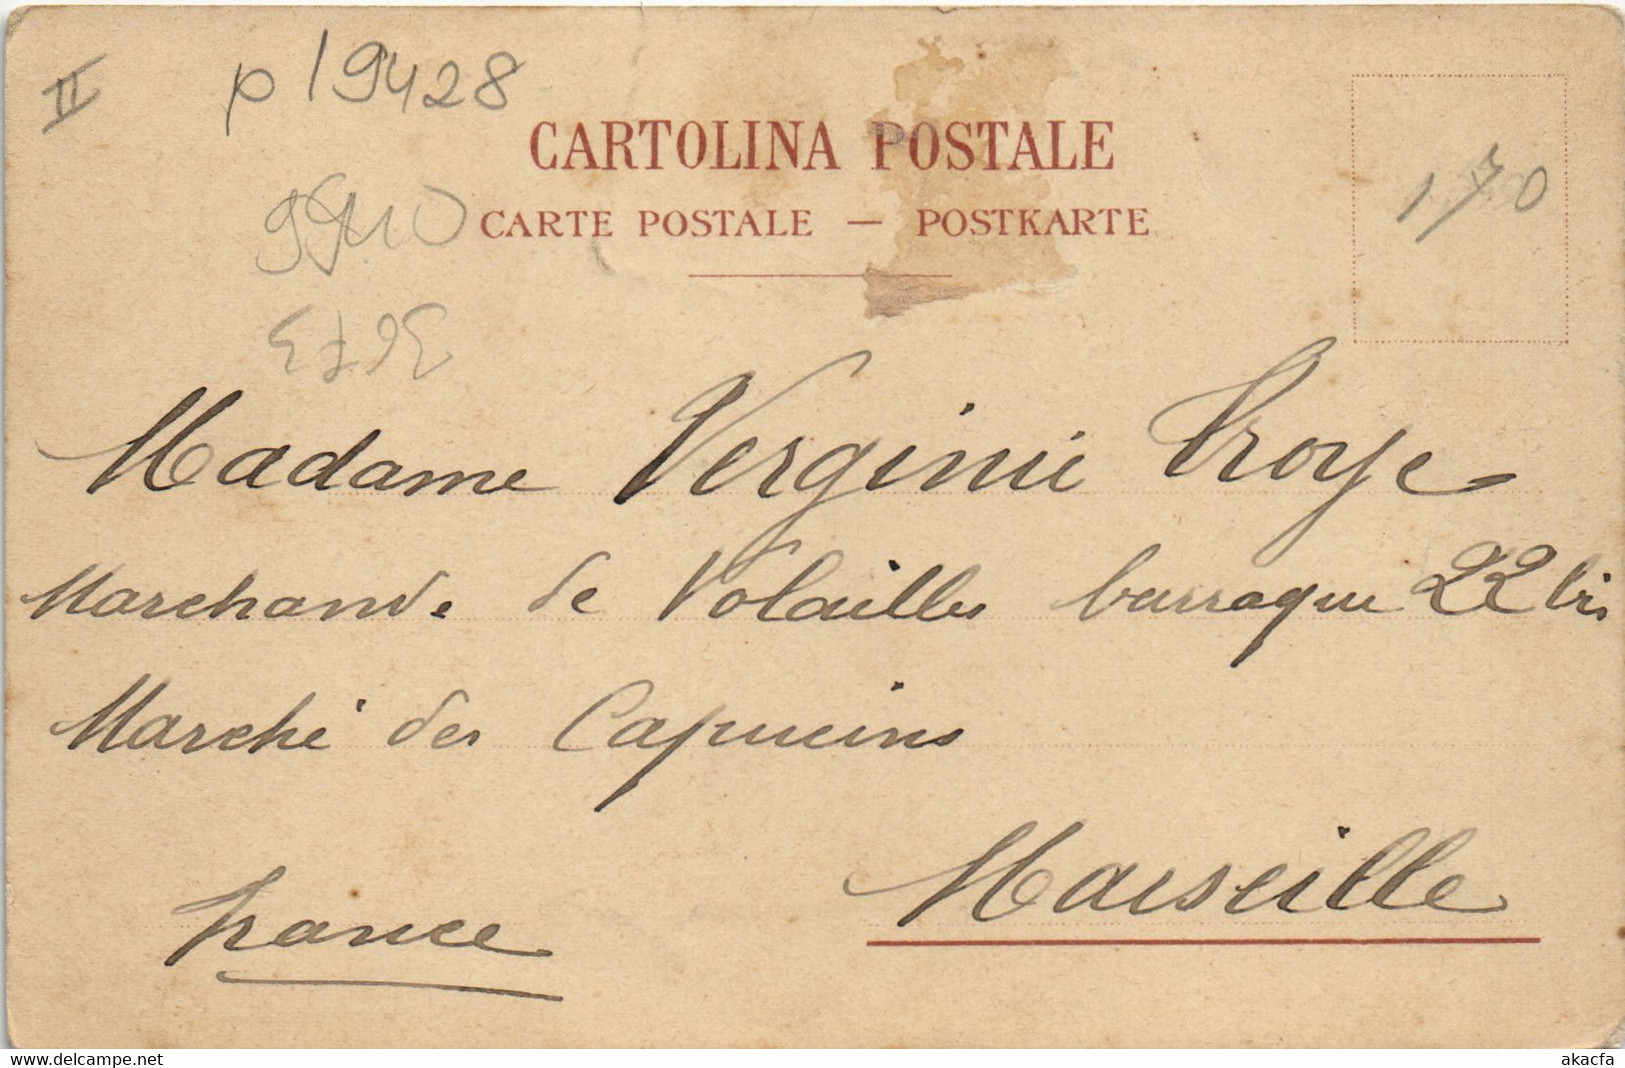 II
p 19428
CARTOLINA POSTALE
CARTE POSTALE — POSTKARTE
170
Madame Verginie Troye
Marchande de Volailles barraque 22 bis
Marché des Capucins
Marseille
France
www.delcampe.net
akacfa